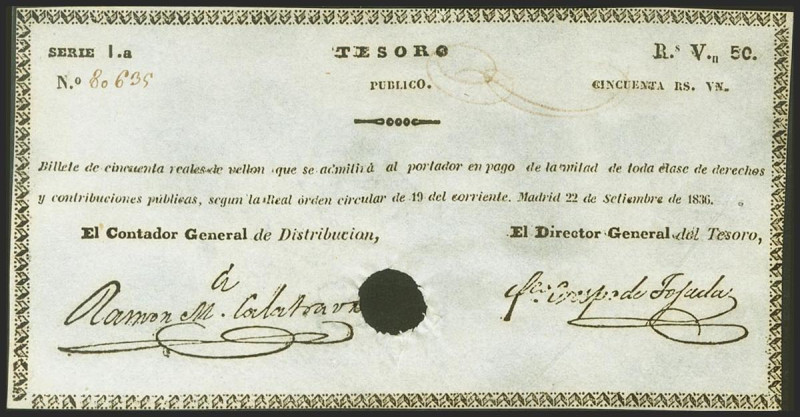 SERIE 1.a TESORO R.s V.n 50.
N.o 80635 PUBLICO. CINCUENTA RS. VN.
Billete de cincuenta reales de vellon que se admitirá al portador en pago de la mitad de toda clase de derechos
y contribuciones públicas, segun la Real órden circular de 19 del corriente. Madrid 22 de Setiembre de 1836.
El Contador General de Distribucion, El Director General del Tesoro,
Ramon M.a Calatrava
de Tejada